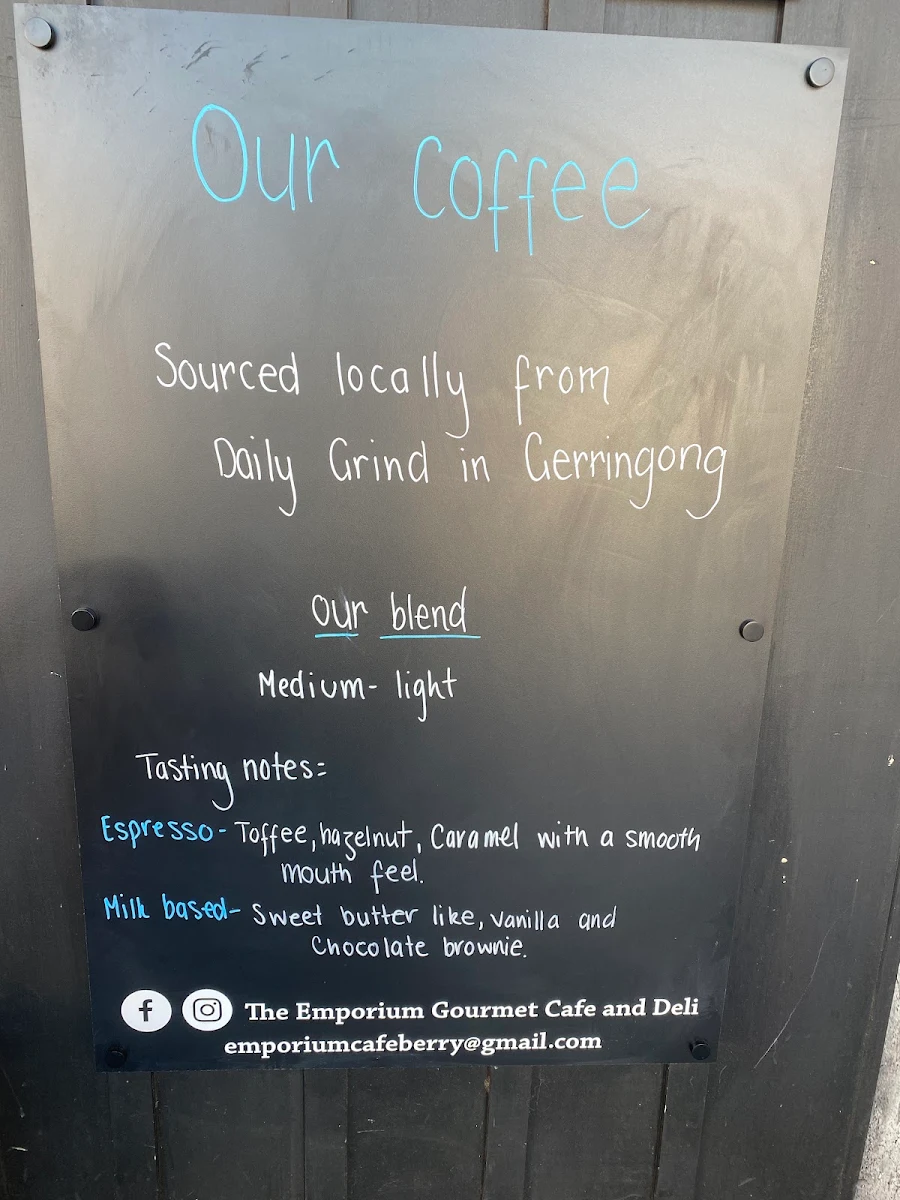 Our Coffee
Sourced locally from
Daily Grind in Gerringong
our blend
Medium- light
Tasting notes:
Espresso- Toffee, hazelnut, Caramel with a smooth
mouth feel.
Milk based- Sweet butter like, vanilla and
Chocolate brownie.
The Emporium Gourmet Cafe and Deli
emporiumcafeberry@gmail.com